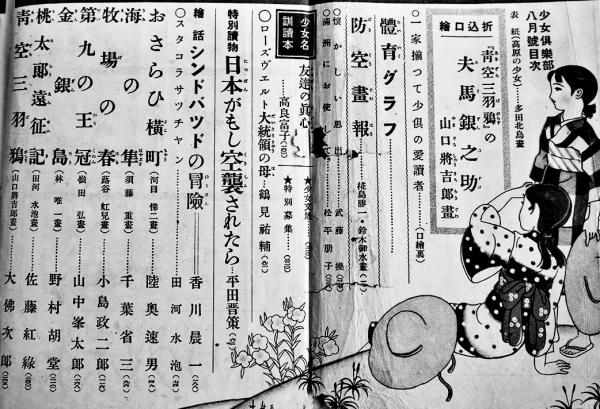 少女倶樂部
八月號目次
表紙(高原の少女)……多田北烏畫
折込口繪
『青空三羽鴉』の
夫馬銀之助
山口將吉郎畫
○一家揃つて少倶の愛讀者……(口繪裏)
體育グラフ
防空畫報
椛島勝一・鈴木御水畫
○懷かしい思出……武藤操
○滿洲にお使して……松平朋子
少女名訓讀本
友達の眞心……高良富子
○ローズヴエルト大統領の母……鶴見祐輔
★少女文壇
★特別募集
特別讀物
日本がもし空襲されたら……平田晋策
繪話
シンドバツドの冒險……香川晨一
○スタコラサツチヤン……田河水泡
おさらひ横町(河目悌二畫)……陸奥速男
海の隼(須藤重畫)……千葉省三
牧場の春(蕗谷虹兒畫)……小島政二郎
第九の王冠(嶺田弘畫)……山中峯太郎
金銀島(林唯一畫)……野村胡堂
桃太郎遠征記(田河水泡畫)……佐藤紅綠
青空三羽鴉(山口將吉郎畫)……大佛次郎